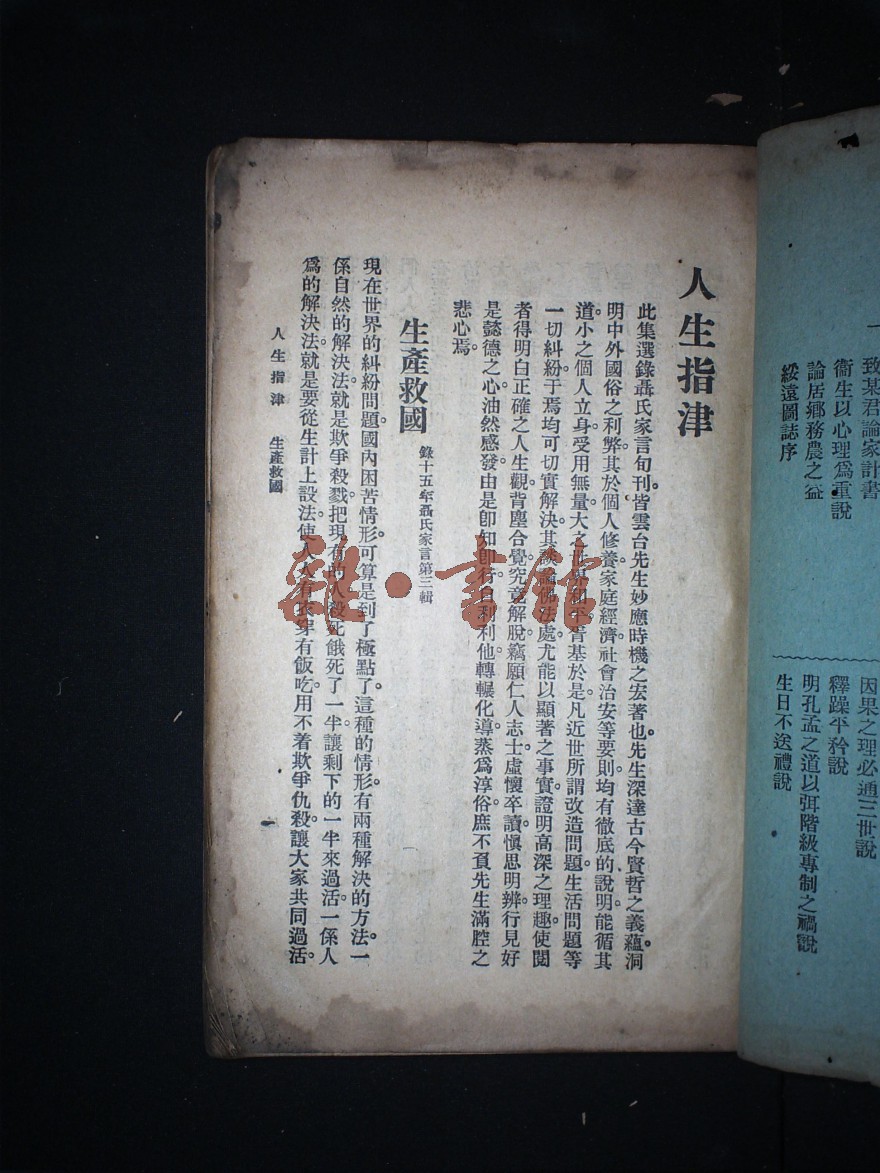 一
致某君論家計書
衛生以心理爲重說
論居鄉務農之益
綏遠圖誌序
因果之理必通三世說
釋躁平矜說
明孔孟之道以弭階級專制之禍說
生日不送禮說
人生指津
此集選錄聶氏家言旬刊。皆雲台先生妙應時機之宏著也。先生深達古今賢哲之義蘊。洞
明中外國俗之利弊。其於個人修養。家庭經濟。社會治安等要則。均有徹底的說明。能循其
道。小之個人立身。受用無量。大之世界和平。胥基於是。凡近世所謂改造問題。生活問題等
一切糾紛。于焉均可切實解決。其談論佛法處。尤能以顯著之事實。證明高深之理趣。使閱
者得明白正確之人生觀。背塵合覺。究竟解脫。竊願仁人志士。虛懷卒讀。愼思明辨。行見好
是懿德之心。油然感發。由是卽知卽行。自利利他。轉輾化導。蒸爲淳俗。庶不負先生滿腔之
悲心焉。
生產救國 錄十五年聶氏家言第三輯
現在世界的糾紛問題。國內困苦情形。可算是到了極點了。這種的情形。有兩種解決的方法。一
係自然的解決法。就是欺爭殺戮。把現有的人殺死餓死了一半。讓剩下的一半來過活。一係人
爲的解決法。就是要從生計上設法。使人人有衣穿有飯吃。用不着欺爭仇殺。讓大家共同過活。
人生指津 生產救國
雜·書館